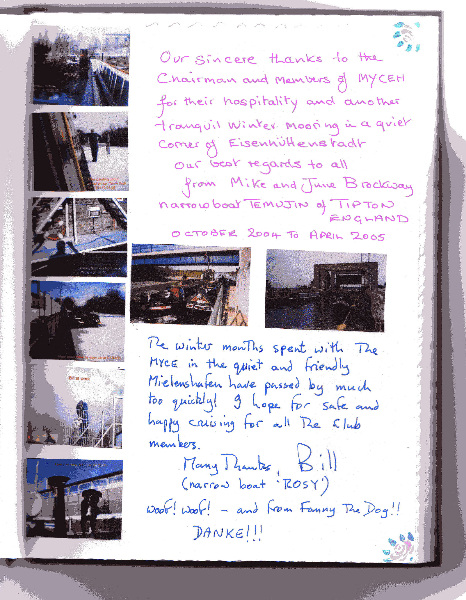 Our sincere thanks to the
Chairman and members of MYCEH
for their hospitality and another
tranquil winter mooring in a quiet
corner of Eisenhüttenstadt
Our best regards to all
from Mike and June Brockway
narrowboat TEMUJIN of TIPTON
ENGLAND
OCTOBER 2004 TO APRIL 2005
The winter months spent with The
MYCE in the quiet and friendly
Mielenshafen have passed by much
too quickly! I hope for safe and
happy cruising for all The Club
members.
Many Thanks, Bill
(narrow boat 'ROSY')
Woof! Woof! - and from Fanny The Dog!!
DANKE!!!